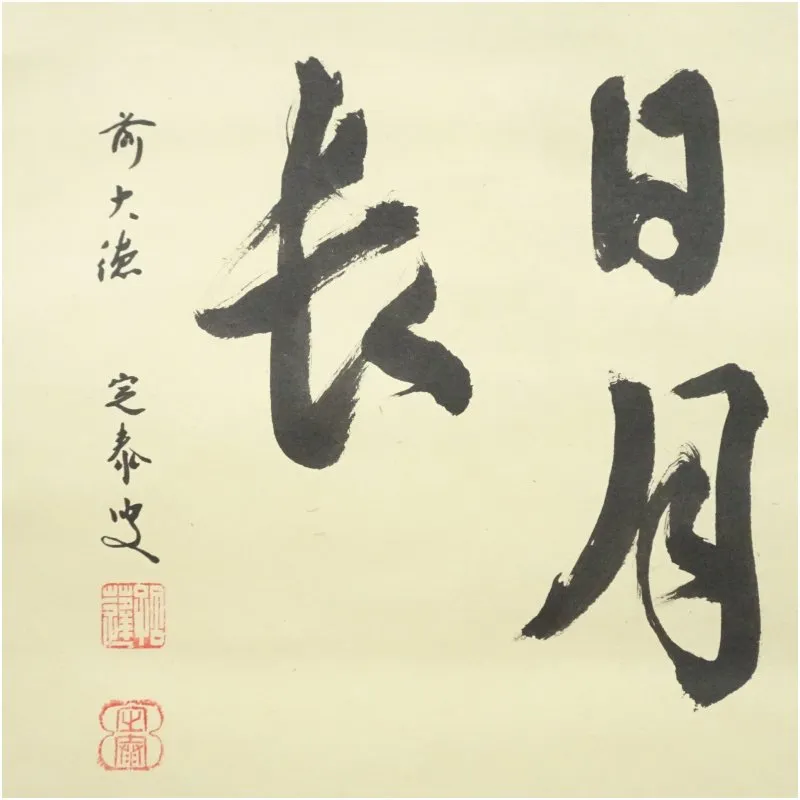 日月
長
前大徳 定泰叟
定泰